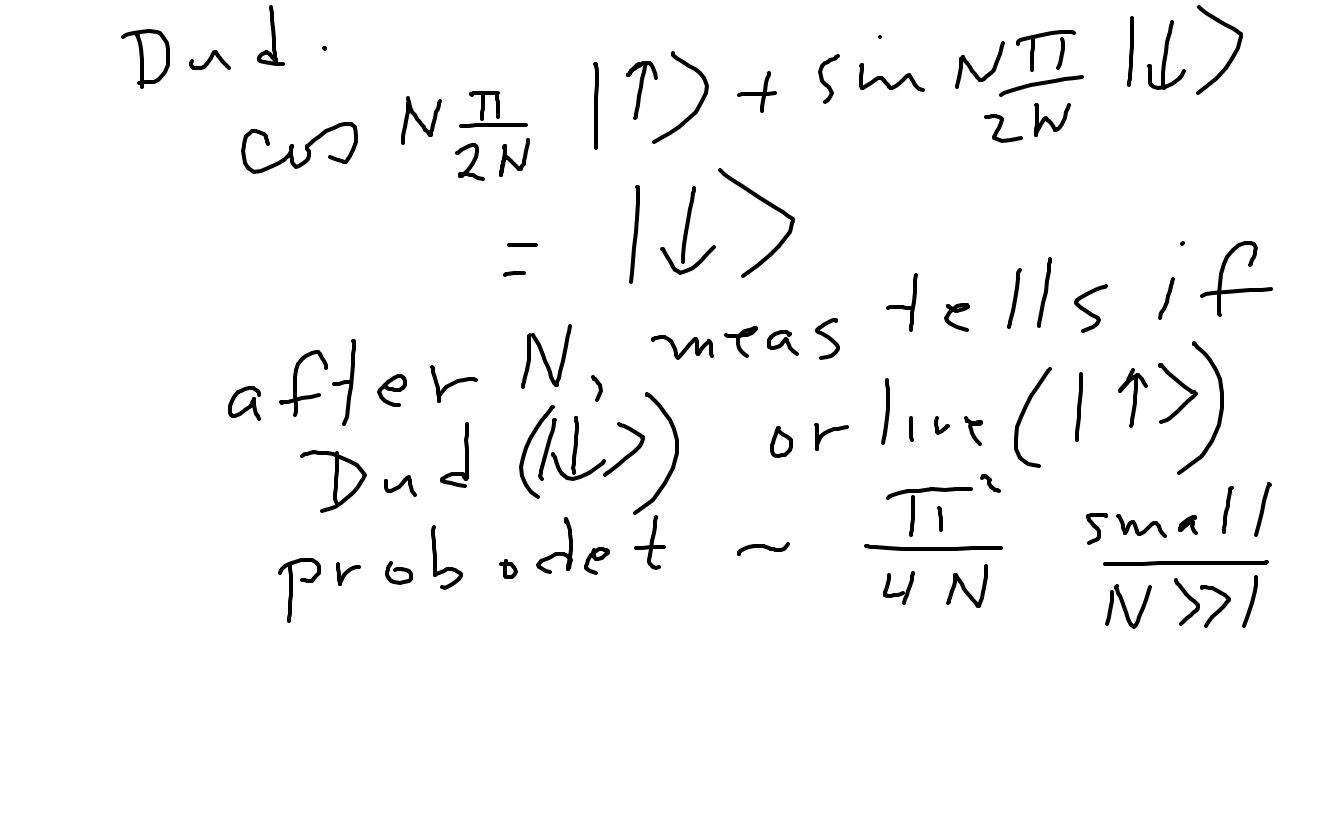 Dud.
cos N π/2N |↑> + sin Nπ/2N |↓>
= |↓>
after N, meas tells if
Dud (|↓>) or live (|↑>)
prob det ~ π²/4N small/N>>1